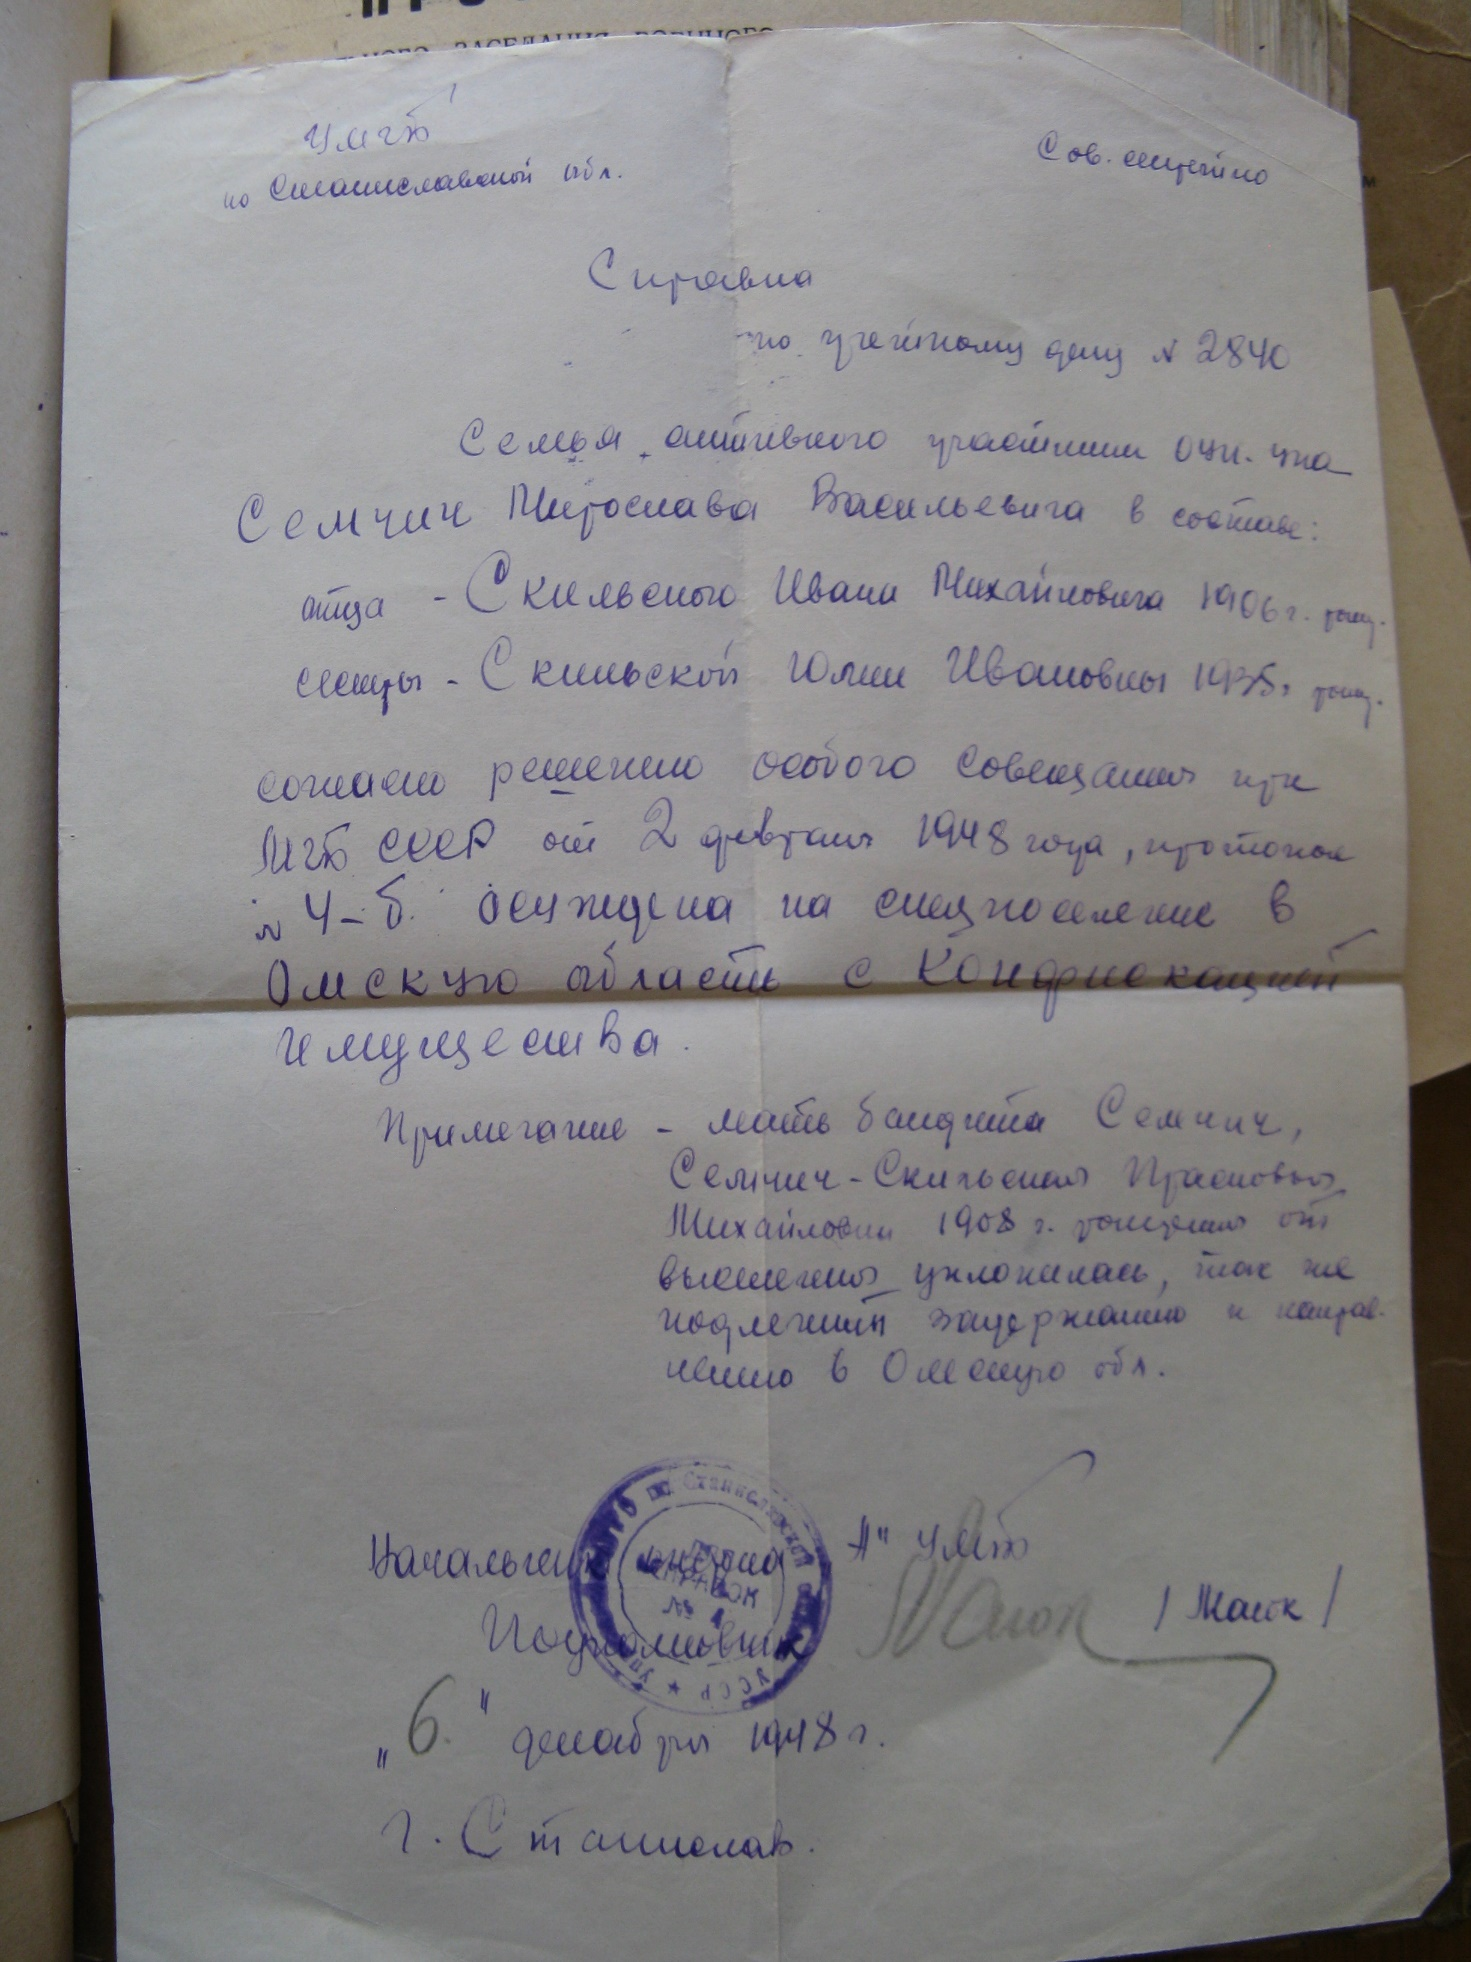 НОГО ЗАСЕДАНИЯ ВОЕННОГО
УМГБ
по Станиславской обл.
Сов. секретно
Справка
по учетному делу № 2840
Семья активного участника оун. упа
Семчич Мирослава Васильевича в составе:
отца - Скильского Ивана Михайловича 1906 г. рожд.
сестры - Скильской Юлии Ивановны 1935 г. рожд.
согласно решению особого совещания при
МГБ СССР от 2 февраля 1948 года, протокол
№ 4-б. осуждена на спецпоселение в
Омскую область с конфискацией
имущества.
Примечание - мать бандита Семчич,
Семчич-Скильская Прасковья
Михайловна 1908 г. рождения от
выселения уклонилась, так же
подлежит задержанию и направ-
лению в Омскую обл.
Начальник отдела "А" УМГБ
Подполковник /Масюк/
"6." декабря 1948 г.
г. Станислав.
по Станиславской
УССР
№ 1